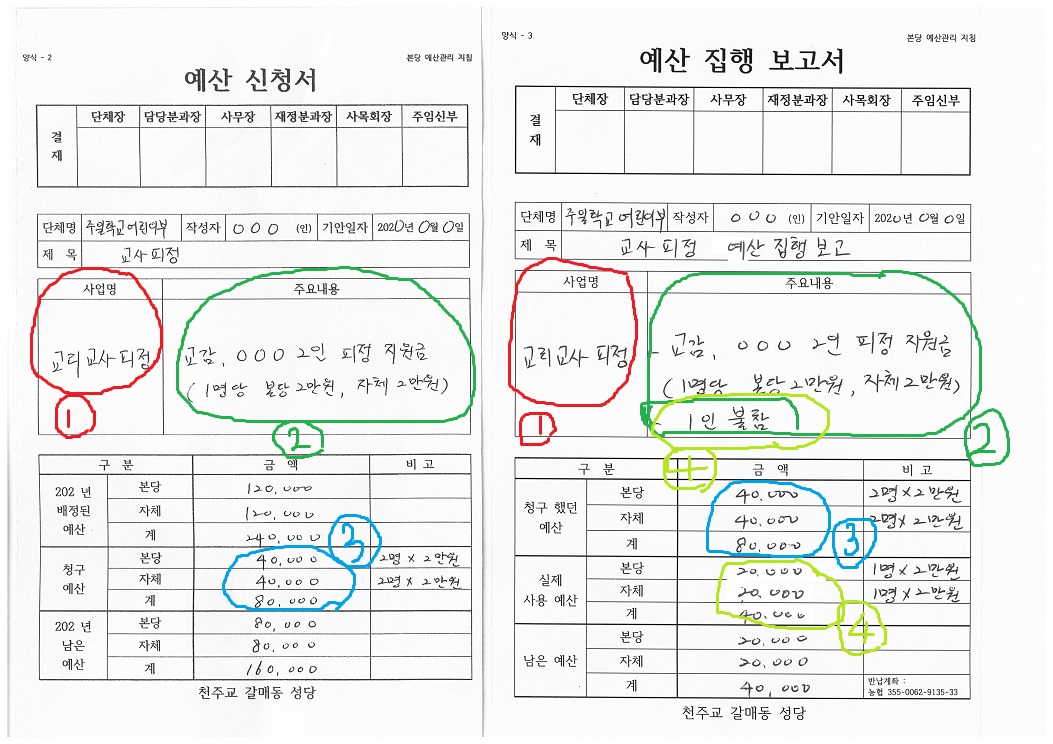 양식 - 2
본당 예산관리 지침
예산 신청서
결재
단체장 담당분과장 사무장 재정분과장 사목회장 주임신부
단체명 주일학교 어린이부 작성자 ○○○ (인) 기안일자 2020년 0월 0일
제 목 교사 피정
사업명 주요내용
교리교사 피정 교감, ○○○ 2인 피정 지원금
(1명당 본당 2만원, 자체 2만원)
1
2
구 분 금 액 비 고
202 년 배정된 예산 본당 120,000
자체 120,000
계 240,000
3
청구 예산 본당 40,000 2명 × 2만원
자체 40,000 2명 × 2만원
계 80,000
202 년 남은 예산 본당 80,000
자체 80,000
계 160,000
천주교 갈매동 성당
양식 - 3
본당 예산관리 지침
예산 집행 보고서
결재
단체장 담당분과장 사무장 재정분과장 사목회장 주임신부
단체명 주일학교 어린이부 작성자 ○○○ (인) 기안일자 2020년 0월 0일
제 목 교사 피정 예산 집행 보고
사업명 주요내용
교리교사 피정 - 교감, ○○○ 2인 피정 지원금
(1명당 본당 2만원, 자체 2만원)
- 1인 불참
1
2
4
구 분 금 액 비 고
청구 했던 예산 본당 40,000 2명 × 2만원
자체 40,000 2명 × 2만원
계 80,000
3
실제 사용 예산 본당 20,000 1명 × 2만원
자체 20,000 1명 × 2만원
계 40,000
4
남은 예산 본당 20,000
자체 20,000
계 40,000 반납계좌 :
농협 355-0062-9135-33
천주교 갈매동 성당